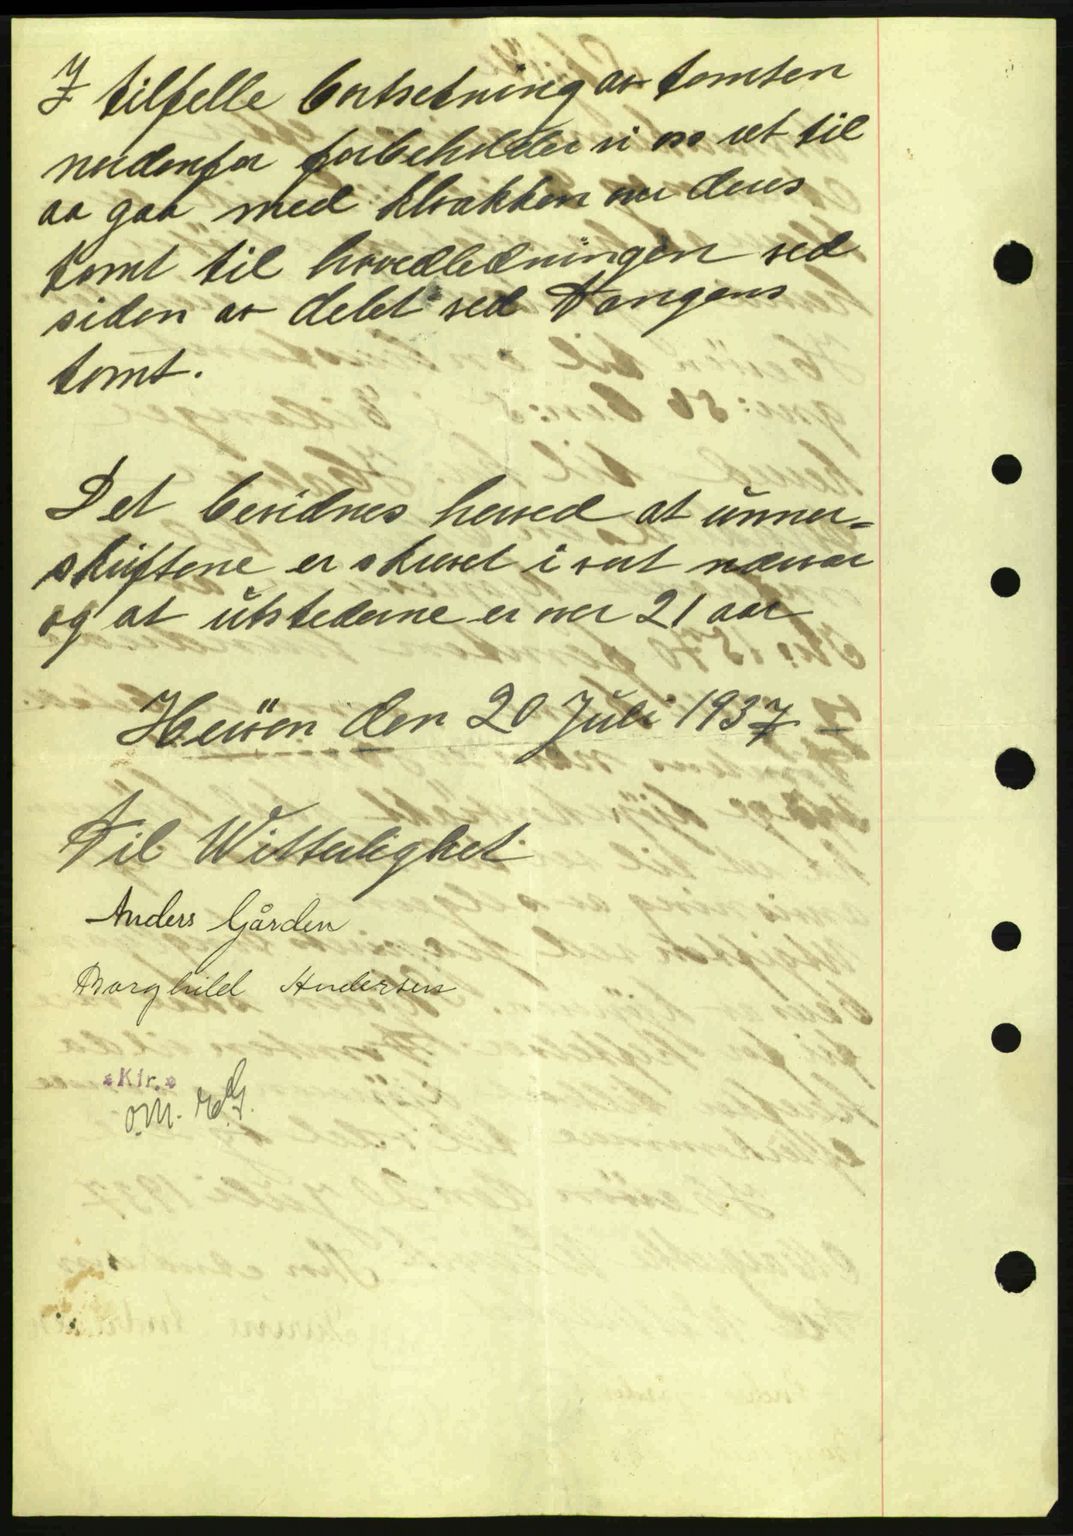 I tilfelle bortsetning av tomten
nordenfor forbeholder vi oss ret til
aa gaa med kloakken over deres
tomt til hovedledningen ved
siden av delet ved Vangens
tomt.
Det bevidnes herved at unner-
skriftene er skrevet i vort nærvær
og at utstederne er over 21 aar
Herøen den 20 Juli 1937
Til Witterlighet
Anders Gården
Borghild Andersen
*Kfr.*
O.M. E.G.